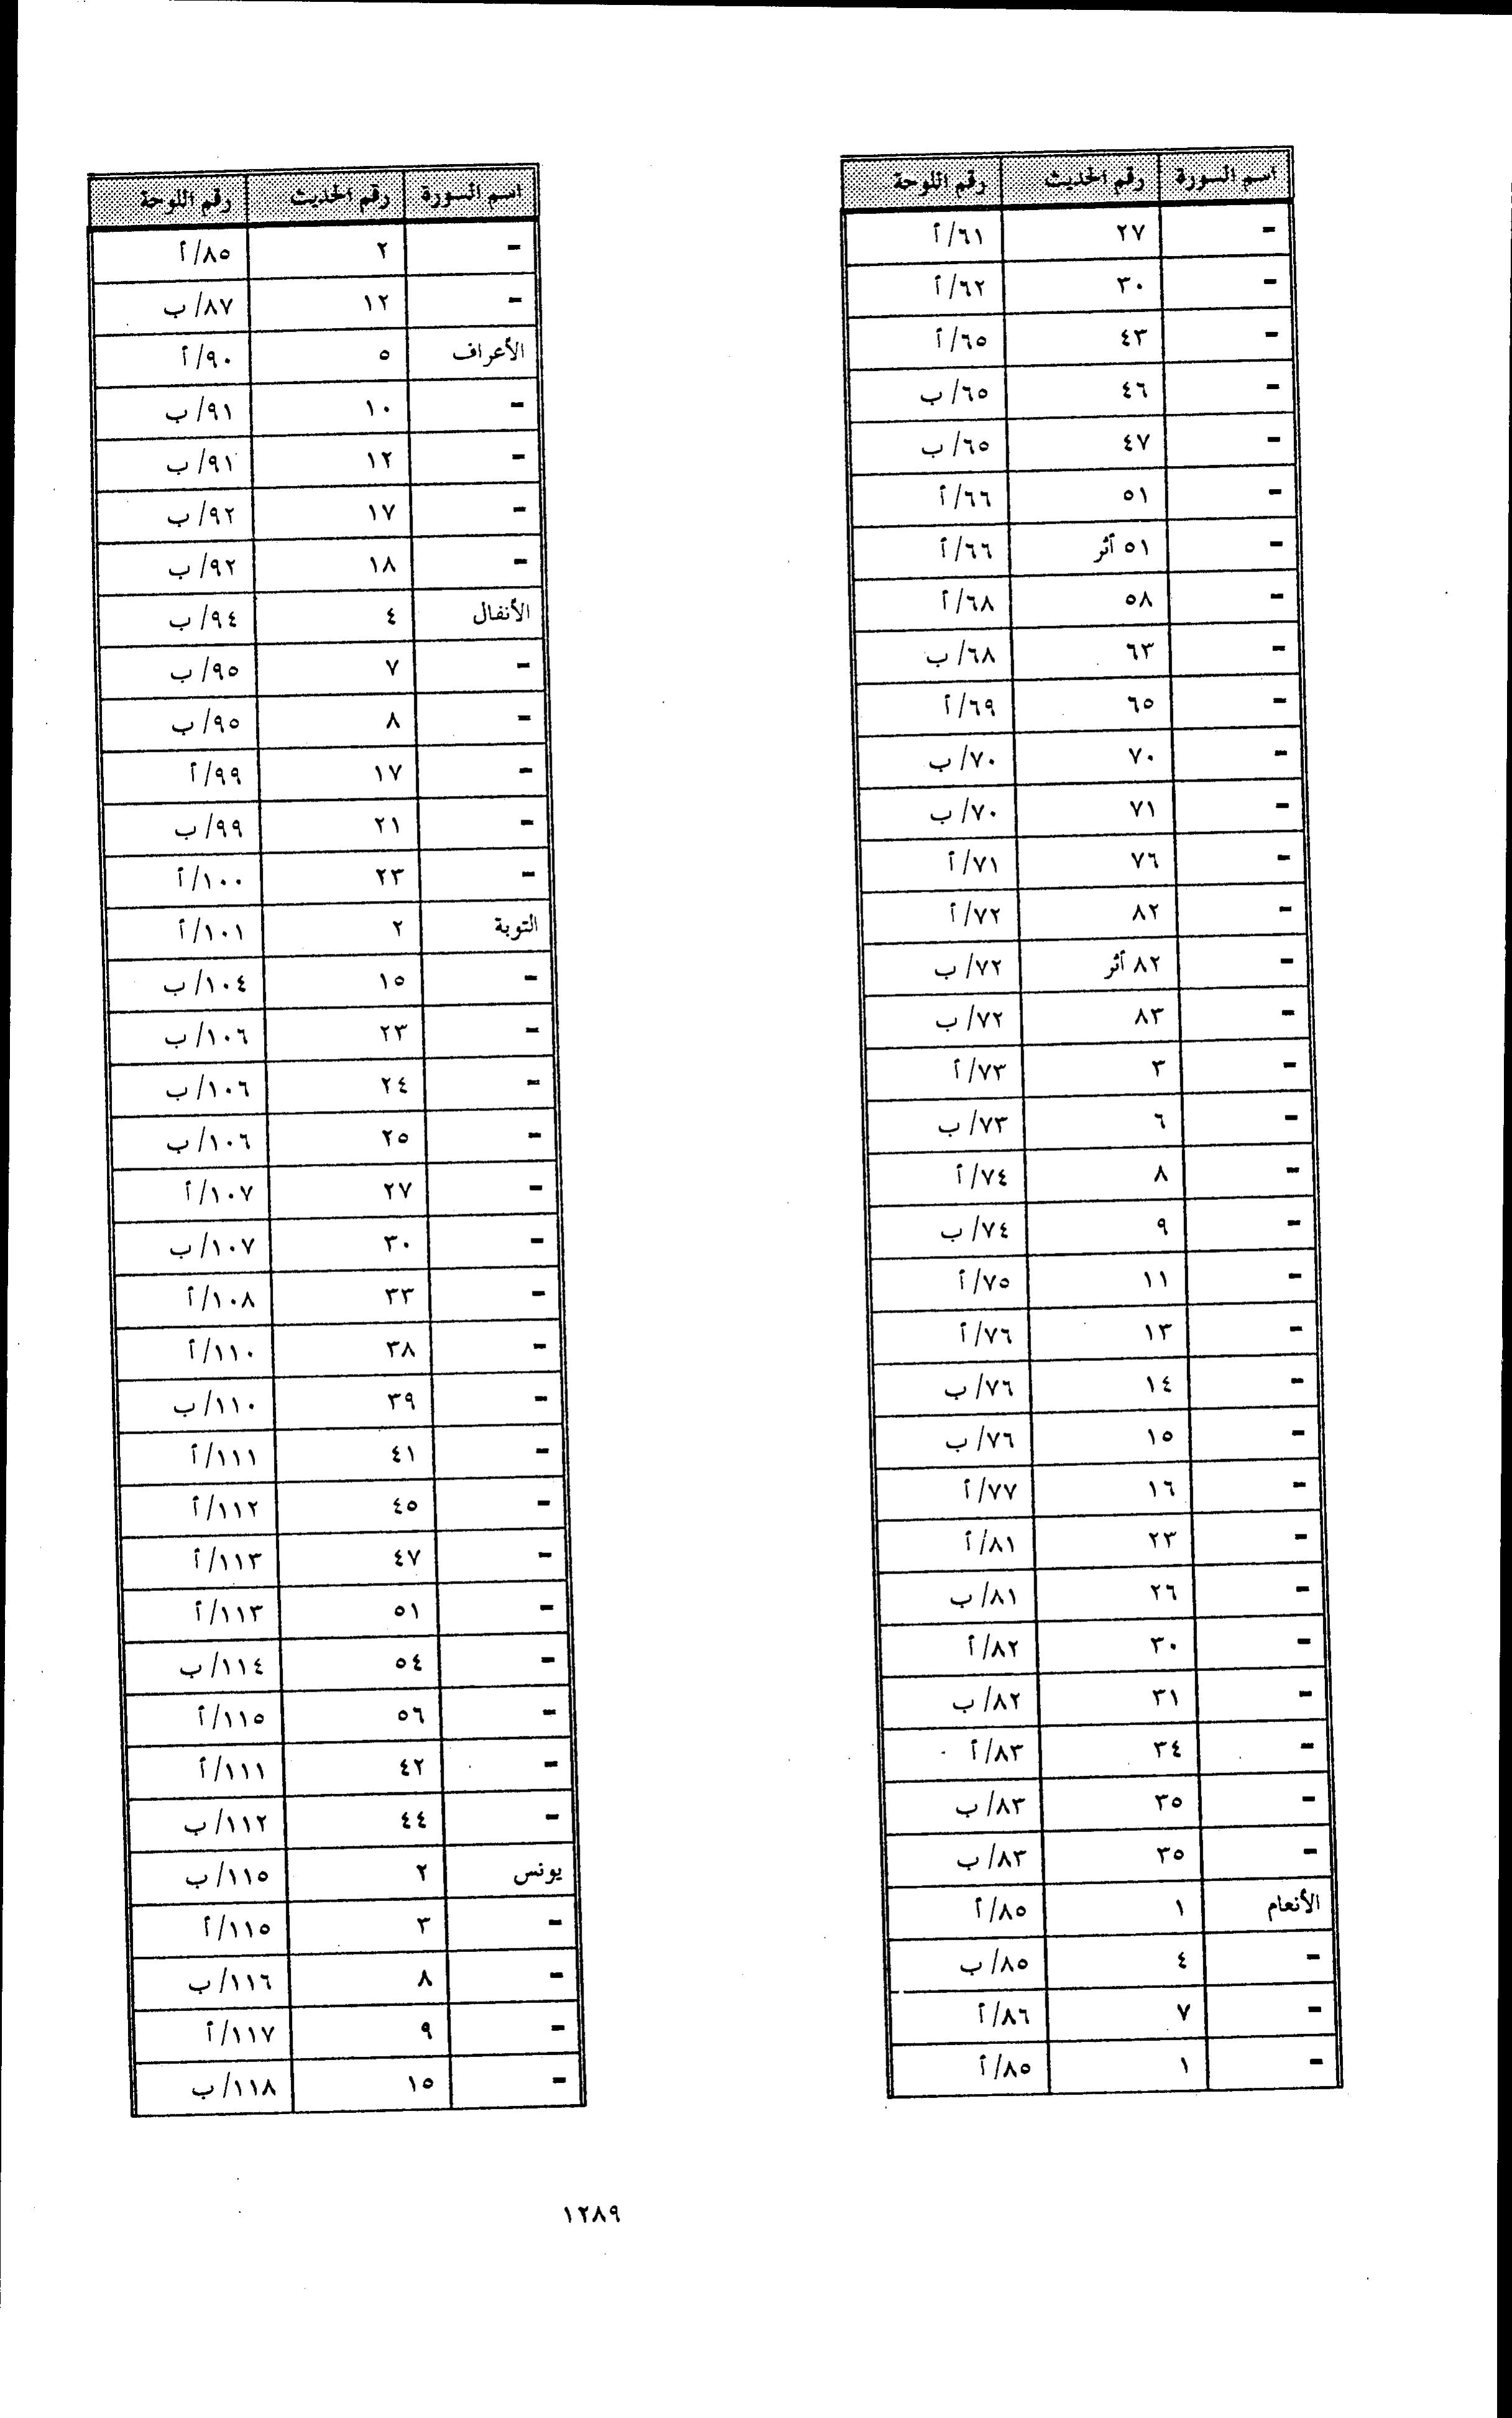 اسم السورة رقم الحديث رقم اللوحة
- ٢٧ ٦١/ أ
- ٣٠ ٦٢/ أ
- ٤٣ ٦٥/ أ
- ٤٦ ٦٥/ ب
- ٤٧ ٦٥/ ب
- ٥١ ٦٦/ أ
- ٥١ أثر ٦٦/ أ
- ٥٨ ٦٨/ أ
- ٦٣ ٦٨/ ب
- ٦٥ ٦٩/ أ
- ٧٠ ٧٠/ ب
- ٧١ ٧٠/ ب
- ٧٦ ٧١/ أ
- ٨٢ ٧٢/ أ
- ٨٢ أثر ٧٢/ ب
- ٨٣ ٧٢/ ب
- ٣ ٧٣/ أ
- ٦ ٧٣/ ب
- ٨ ٧٤/ أ
- ٩ ٧٤/ ب
- ١١ ٧٥/ أ
- ١٣ ٧٦/ أ
- ١٤ ٧٦/ ب
- ١٥ ٧٦/ ب
- ١٦ ٧٧/ أ
- ٢٣ ٨١/ أ
- ٢٦ ٨١/ ب
- ٣٠ ٨٢/ أ
- ٣١ ٨٢/ ب
- ٣٤ ٨٣/ أ
- ٣٥ ٨٣/ ب
- ٣٥ ٨٣/ ب
الأنعام ١ ٨٥/ أ
- ٤ ٨٥/ ب
- ٧ ٨٦/ أ
- ١ ٨٥/ أ
اسم السورة رقم الحديث رقم اللوحة
- ٢ ٨٥/ أ
- ١٢ ٨٧/ ب
الأعراف ٥ ٩٠/ أ
- ١٠ ٩١/ ب
- ١٢ ٩١/ ب
- ١٧ ٩٢/ ب
- ١٨ ٩٢/ ب
الأنفال ٤ ٩٤/ ب
- ٧ ٩٥/ ب
- ٨ ٩٥/ ب
- ١٧ ٩٩/ أ
- ٢١ ٩٩/ ب
- ٢٣ ١٠٠/ أ
التوبة ٢ ١٠١/ أ
- ١٥ ١٠٤/ ب
- ٢٣ ١٠٦/ ب
- ٢٤ ١٠٦/ ب
- ٢٥ ١٠٦/ ب
- ٢٧ ١٠٧/ أ
- ٣٠ ١٠٧/ ب
- ٣٣ ١٠٨/ أ
- ٣٨ ١١٠/ أ
- ٣٩ ١١٠/ ب
- ٤١ ١١١/ أ
- ٤٥ ١١٢/ أ
- ٤٧ ١١٣/ أ
- ٥١ ١١٣/ أ
- ٥٤ ١١٤/ ب
- ٥٦ ١١٥/ أ
- ٤٢ ١١١/ أ
- ٤٤ ١١٢/ ب
يونس ٢ ١١٥/ ب
- ٣ ١١٥/ أ
- ٨ ١١٦/ ب
- ٩ ١١٧/ أ
- ١٥ ١١٨/ ب
١٢٨٩